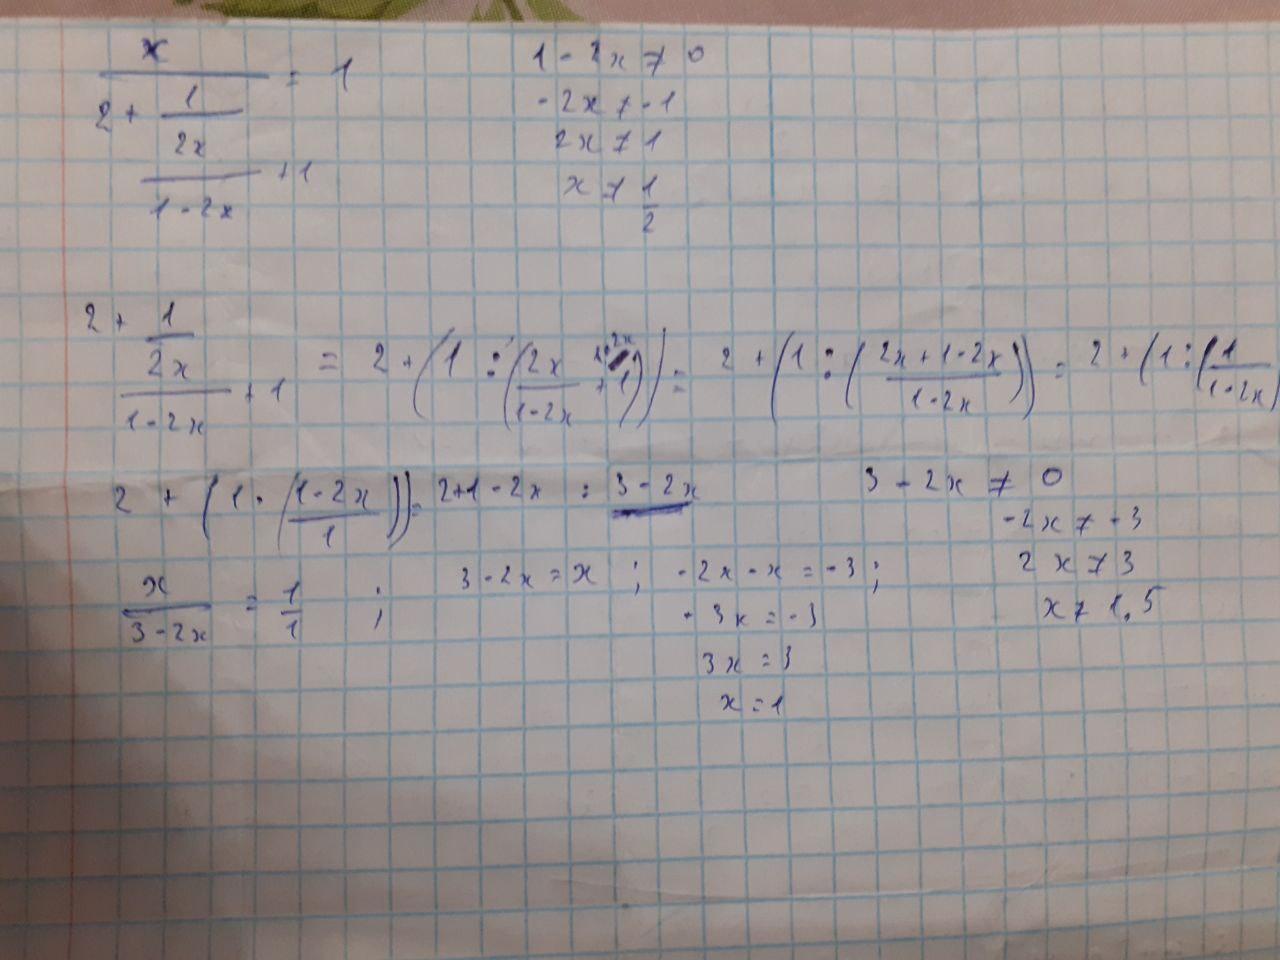 x / (2 + 1 / (2x / (1 - 2x) + 1)) = 1
1 - 2x ≠ 0
-2x ≠ -1
2x ≠ 1
x ≠ 1/2
2 + 1 / (2x / (1 - 2x) + 1) = 2 + (1 : (2x / (1 - 2x) + 1)) = 2 + (1 : ((2x + 1 - 2x) / (1 - 2x))) = 2 + (1 : (1 / (1 - 2x)
2 + (1 · ((1 - 2x) / 1)) = 2+1 - 2x = 3 - 2x
3 - 2x ≠ 0
-2x ≠ -3
2x ≠ 3
x ≠ 1.5
x / (3 - 2x) = 1/1 ; 3 - 2x = x ; -2x - x = -3 ;
-3x = -3
3x = 3
x = 1